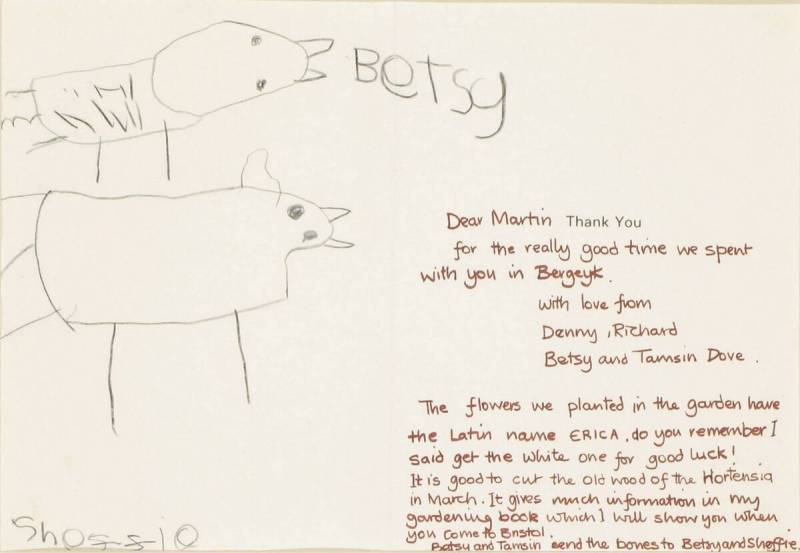 Betsy
Dear Martin Thank You
for the really good time we spent
with you in Bergeyk.
with love from
Denny, Richard
Betsy and Tamsin Dove.
The flowers we planted in the garden have
the Latin name ERICA, do you remember I
said get the white one for good luck!
It is good to cut the old wood of the Hortensia
in March. It gives much information in my
gardening book which I will show you when
you come to Bristol.
Betsy and Tamsin send the bones to Betsy and Sheffie